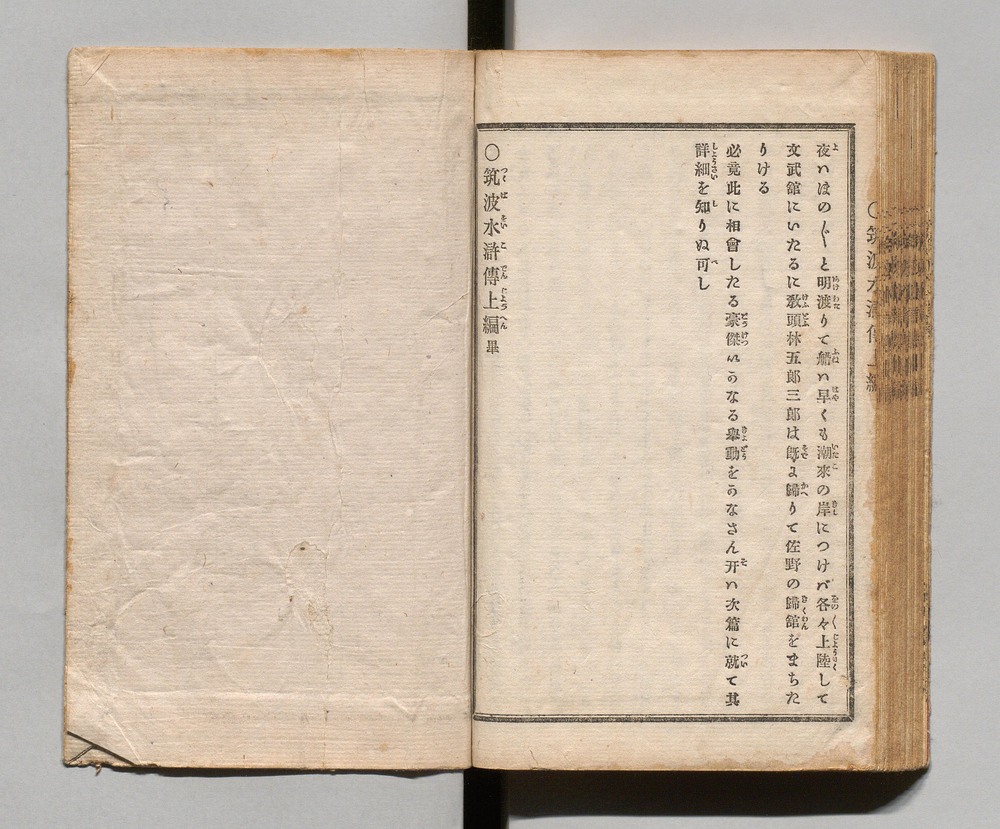 夜ハほの〴〵と明渡りて船ハ早くも潮來の岸につけバ各々上陸して
文武館にいたるに教頭林五郎三郎は既に歸りて佐野の歸館をまちた
りける
必竟此に相會したる豪傑いかなる擧動をかなさん开ハ次篇に就て其
詳細を知りぬ可し
〇筑波水滸傳上編畢
〇筑波水滸傳上編